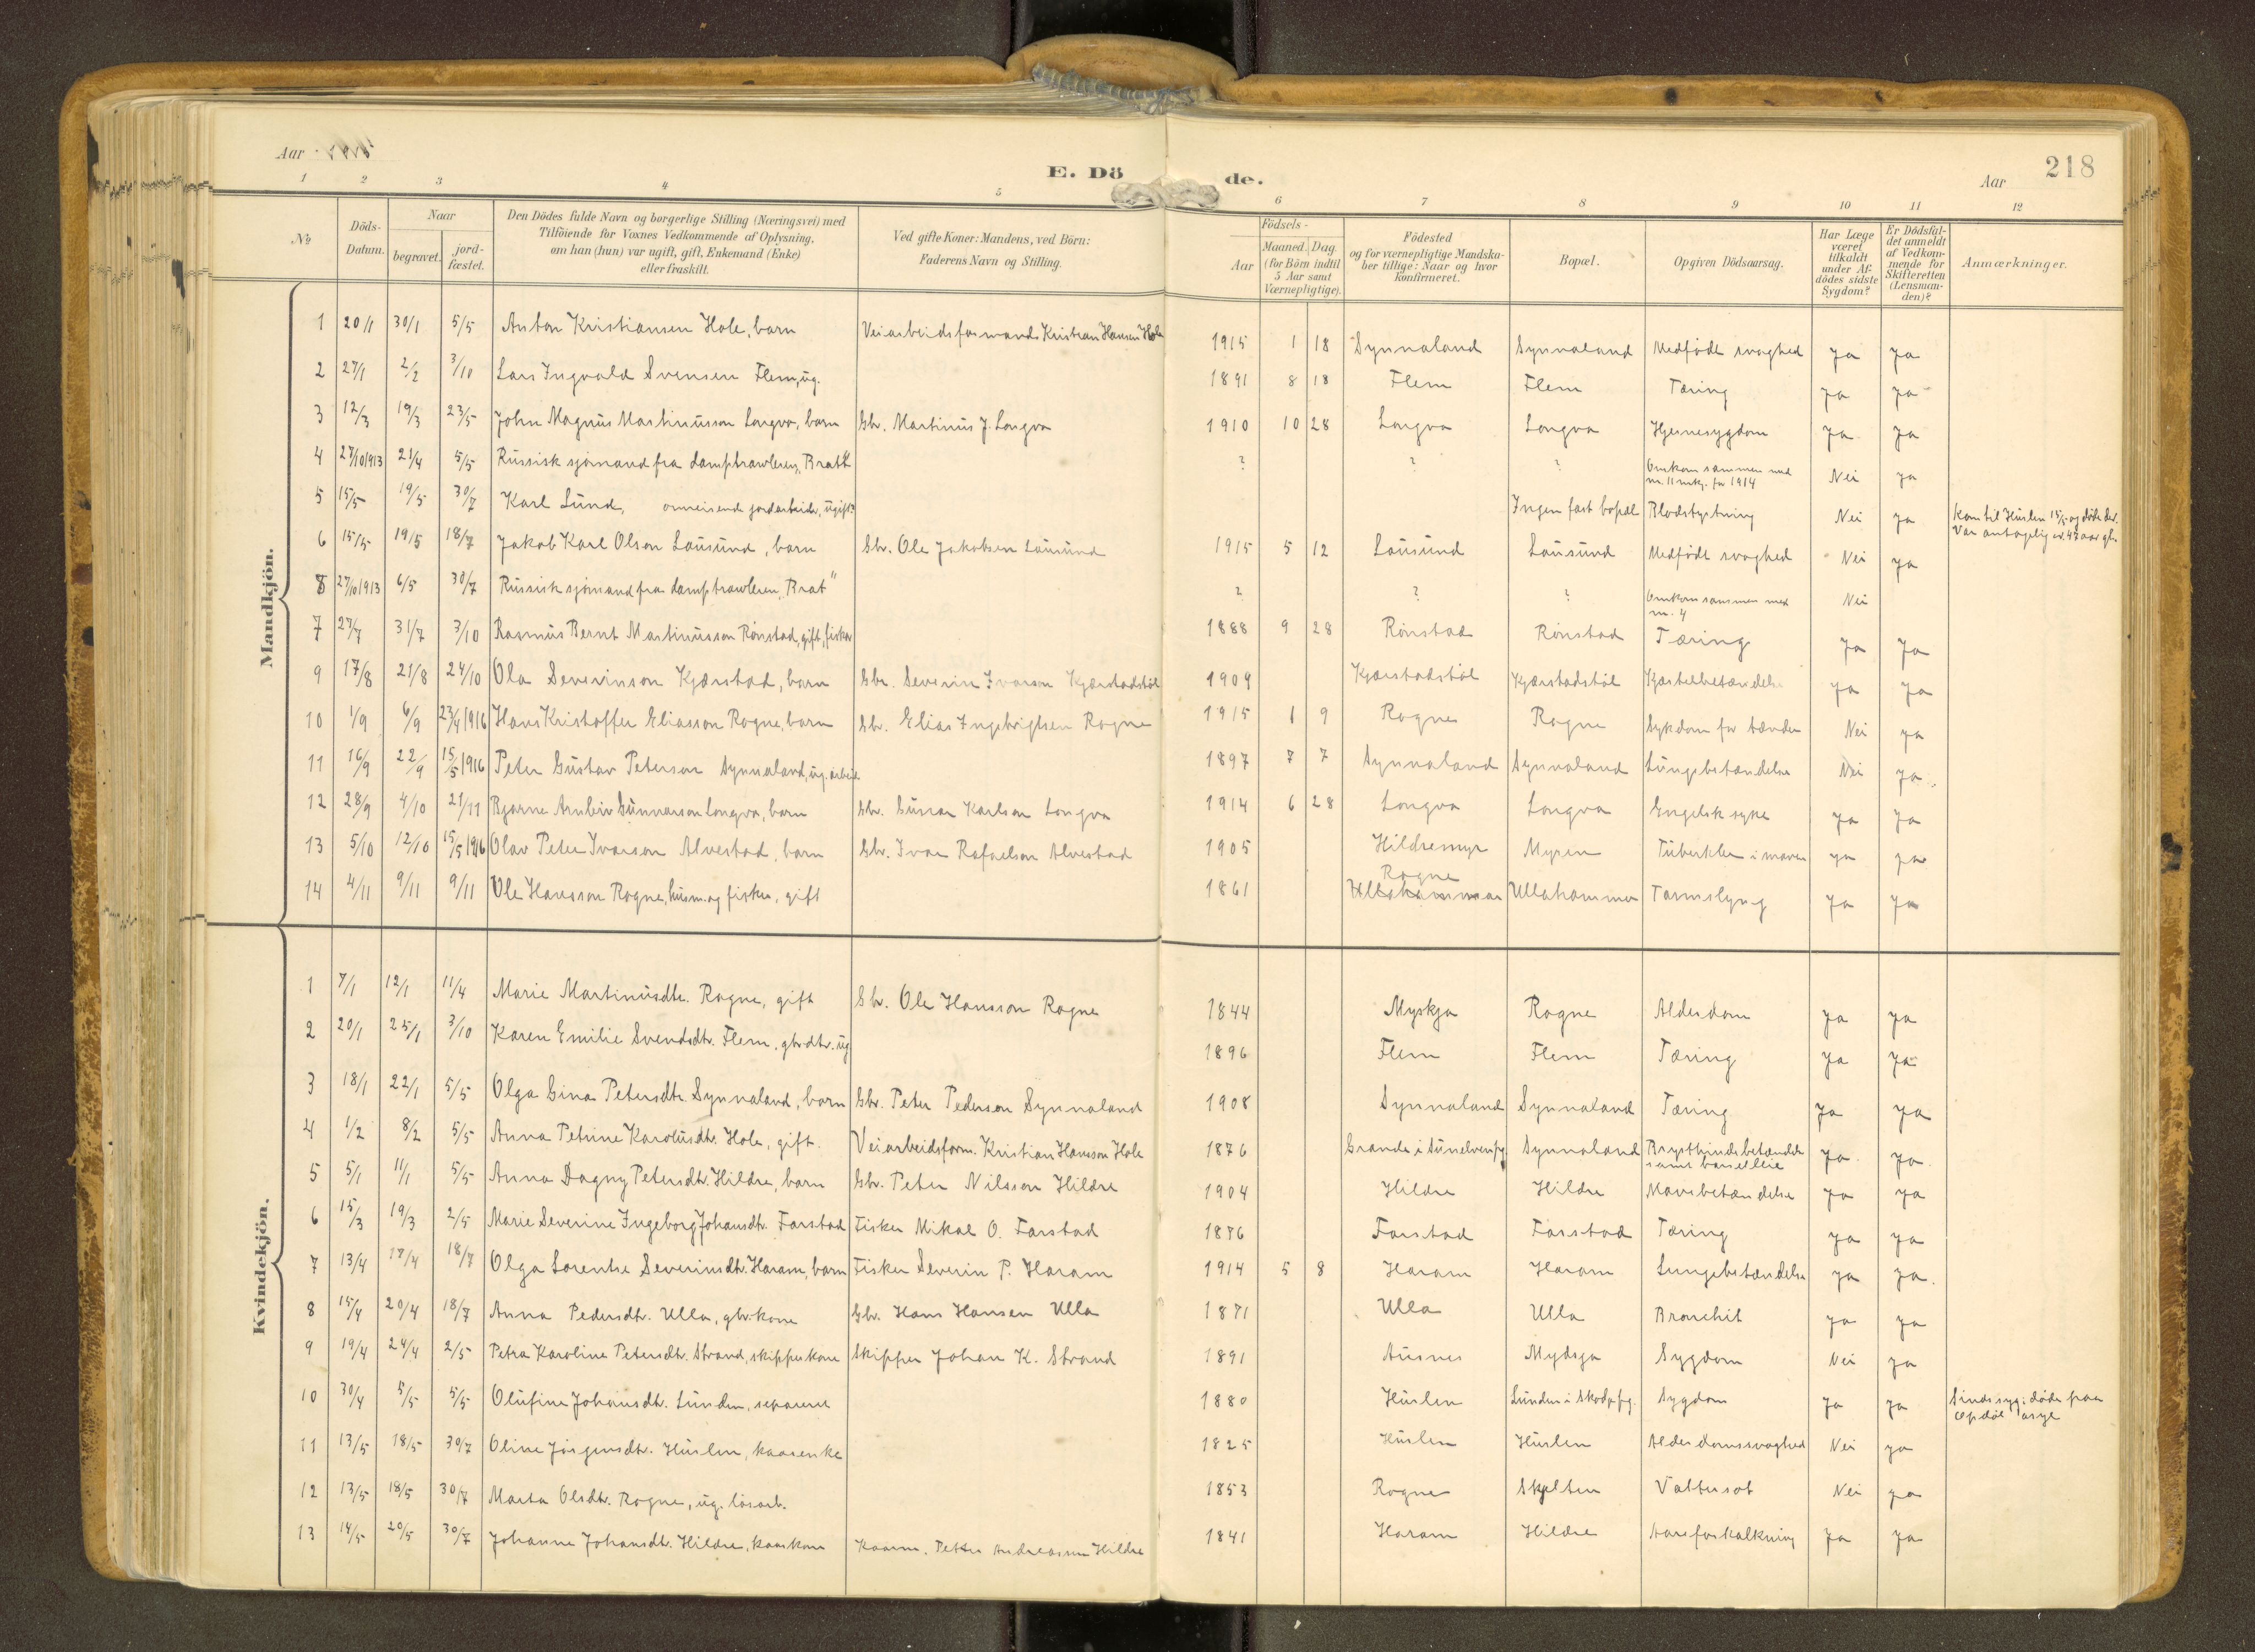 Aar 1915
E. Döde.
Aar
218
1 2 3 4 5 6 7 8 9 10 11 12
№
Döds-Datum.
Naar
begravet.
jord-fæstet.
Den Dödes fulde Navn og borgerlige Stilling (Næringsvei) med
Tilföiende for Voxnes Vedkommende af Oplysning,
om han (hun) var ugift, gift, Enkemand (Enke)
eller fraskilt.
Ved gifte Koner: Mandens, ved Börn:
Faderens Navn og Stilling.
Födsels-
Aar
Maaned. Dag.
(for Börn indtil
5 Aar samt
Værnepligtige).
Födested
og for værnepligtige Mandska-
ber tillige: Naar og hvor
konfirmeret.
Bopæl.
Opgiven Dödsaarsag.
Har Læge
været
tilkaldt
under Af-
dödes sidste
Sygdom?
Er Dödsfal-
det anmeldt
af Vedkom-
mende for
Skifteretten
(Lensman-
den)?
Anmærkninger.
Mandkjön.
1 20/1 30/1 5/5 Anton Kristiansen Hole, barn Veiarbeidsformand Kristian Hansen Hole 1915 1 18 Synnaland Synnaland Medfødt svaghed Ja Ja
2 27/1 2/2 3/10 Lars Ingvald Svensen Flem, ug. 1891 8 18 Flem Flem Tæring Ja Ja
3 12/3 19/3 23/5 John Magnus Martinusson Longva, barn Gbr. Martinus J. Longva 1910 10 28 Longva Longva Hjernesygdom Ja Ja
4 27/10 1913 21/4 5/5 Russisk sjømand fra damptrawleren „Bratt" ? ? ? Omkom sammen med
nr. 11 mkj. for 1914 Nei Ja
5 15/5 19/5 30/7 Karl Lund, omreisende jordarbeider, ugift? Ingen fast bopæl Blodstyrtning Nei Ja Kom til Huslen 15/5 og døde der.
Var antagelig ca. 47 aar gl.
6 15/5 19/5 18/7 Jakob Karl Olson Lausund, barn Gbr. Ole Jakobsen Lausund 1915 5 12 Lausund Lausund Medfødt svaghed Nei Ja
8 27/10 1913 6/5 30/7 Russisk sjømand fra damptrawleren „Brat" ? ? ? Omkom sammen med
nr. 4 Nei
7 27/7 31/7 3/10 Rasmus Bernt Martinusson Rønstad, gift, fisker 1888 9 28 Rønstad Rønstad Tæring Ja Ja
9 17/8 21/8 24/10 Ola Severinson Kjærstad, barn Gbr. Severin Ivarson Kjærstadstøl 1909 Kjærstadstøl Kjærstadstøl Ja Ja
10 1/9 6/9 23/4 1916 Hans Kristoffer Eliasson Rogne, barn Gbr. Elias Ingebrigtsen Rogne 1915 1 9 Rogne Rogne Sykdom for tænder Nei Ja
11 16/9 22/9 15/5 1916 Peter Gustav Peterson Synnaland, ug. arbeid. 1897 7 7 Synnaland Synnaland Lungebetændelse Nei Ja
12 28/9 4/10 21/11 Bjarne Arnleiv Gunnarson Longva, barn Gbr. Gunnar Karlson Longva 1914 6 28 Longva Longva Engelsk syke Ja Ja
13 5/10 12/10 15/5 1916 Olav Peter Ivarson Alvestad, barn Gbr. Ivar Rafaelson Alvestad 1905 Hildremyr Myren Tuberkler i maven Ja Ja
14 4/11 9/11 9/11 Ole Hansson Rogne, husm. og fisker, gift 1861 Rogne
Ullahammar Ullahammer Tarmslyng Ja Ja
Kvindekjön.
1 7/1 12/1 11/4 Marie Martinusdtr. Rogne, gift Gbr. Ole Hansson Rogne 1844 Myskja Rogne Alderdom Ja Ja
2 20/1 25/1 3/10 Karen Emilie Svendsdtr. Flem, gbrdtr. ug 1896 Flem Flem Tæring Ja Ja
3 18/1 22/1 5/5 Olga Gina Petersdtr. Synnaland, barn Gbr. Peter Pederson Synnaland 1908 Synnaland Synnaland Tæring Ja Ja
4 1/2 8/2 5/5 Anna Petrine Karolusdtr. Hole, gift. Veiarbeidsform. Kristian Hansson Hole 1876 Grande i Sunelven pg. Synnaland Brysthindebetændelse
samt barselleie Ja Ja
5 5/1 11/1 5/5 Anna Dagny Petersdtr. Hildre, barn Gbr. Peter Nilsson Hildre 1904 Hildre Hildre Mavebetændelse Ja Ja
6 15/3 19/3 2/5 Marie Severine Ingeborg Johansdtr. Farstad Fisker Mikal O. Farstad 1876 Farstad Farstad Tæring Ja Ja
7 13/4 17/4 18/7 Olga Lorentse Severinsdtr. Haram, barn Fisker Severin P. Haram 1914 5 8 Haram Haram Lungebetændelse Ja Ja.
8 15/4 20/4 18/7 Anna Pedersdtr. Ulla, gbr.kone Gbr. Hans Hansen Ulla 1871 Ulla Ulla Bronchit Ja Ja
9 19/4 24/4 2/5 Petra Karoline Petersdtr. Strand, skipperkone Skipper Johan K. Strand 1891 Ausnes Sygdom Nei Ja
10 30/4 5/5 5/5 Olufine Johansdtr. Lunden, separert 1880 Huslen Lunden i Skodje pg. Sygdom Ja Ja Sindssyg; døde paa
Opdøl asyl
11 13/5 18/5 30/7 Oline Jørgensdtr. Huslen, kaarenke 1825 Huslen Huslen Alderdomssvaghed Nei Ja
12 13/5 18/5 30/7 Marta Olsdtr. Rogne, ug. løsarb. 1853 Rogne Skjelten Vattersot Nei Ja
13 14/5 20/5 30/7 Johanne Johansdtr. Hildre, kaarkone Kaarm. Petter Andreassen Hildre 1841 Haram Hildre Aareforkalkning Ja Ja